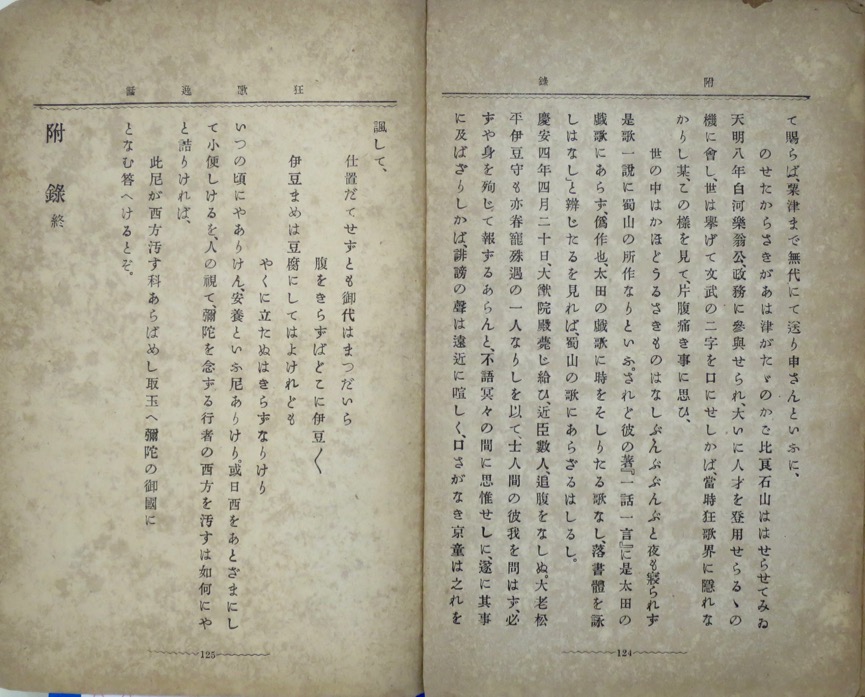 附錄
て賜らば、粟津まで無代にて送り申さんといふに、
のせたからさきがあは津がたゞのかご比良石山ははせらせてみゐ
天明八年白河樂翁公、政務に參與せられ、大いに人才を登用せらるゝの
機に會し、世は擧げて文武の二字を口にせしかば、當時狂歌界に隱れな
かりし某、この樣を見て、片腹痛き事に思ひ、
世の中はかほどうるさきものはなしぶんぶぶんぶと夜も寢られず
是歌一說に蜀山の所作なりといふ。されど彼の著『一話一言』に是太田の
戲歌にあらず、僞作也、太田の戲歌に時をそしりたる歌なし、落書體を詠
しはなし」と辨じたるを見れば、蜀山の歌にあらざるはしるし。
慶安四年四月二十日、大猷院殿薨じ給ひ、近臣數人、追腹をなしぬ。大老松
平伊豆守も亦春寵殊遇の一人なりしを以て、士人間の彼我を問はず、必
ずや身を殉じて報ずるあらんと、不語冥々の間に思惟せしに、遂に其事
に及ばざりしかば、誹謗の聲は遠近に喧しく、口さがなき京童は之れを
124
狂歌逸話
諷して、
仕置だてせずとも御代はまつだいら
腹をきらずばどこに伊豆〱
伊豆まめは豆腐にしてはよけれども
やくに立たぬはきらずなりけり
いつの頃にやありけん、安養といふ尼ありけり。或日西をあとざまにし
て小便しけるを、人の視て、彌陀を念ずる行者の西方を汚すは如何にや
と詰りければ、
此尼が西方汚す科あらばめし取玉へ彌陀の御國に
となむ答へけるとぞ。
附錄終
125